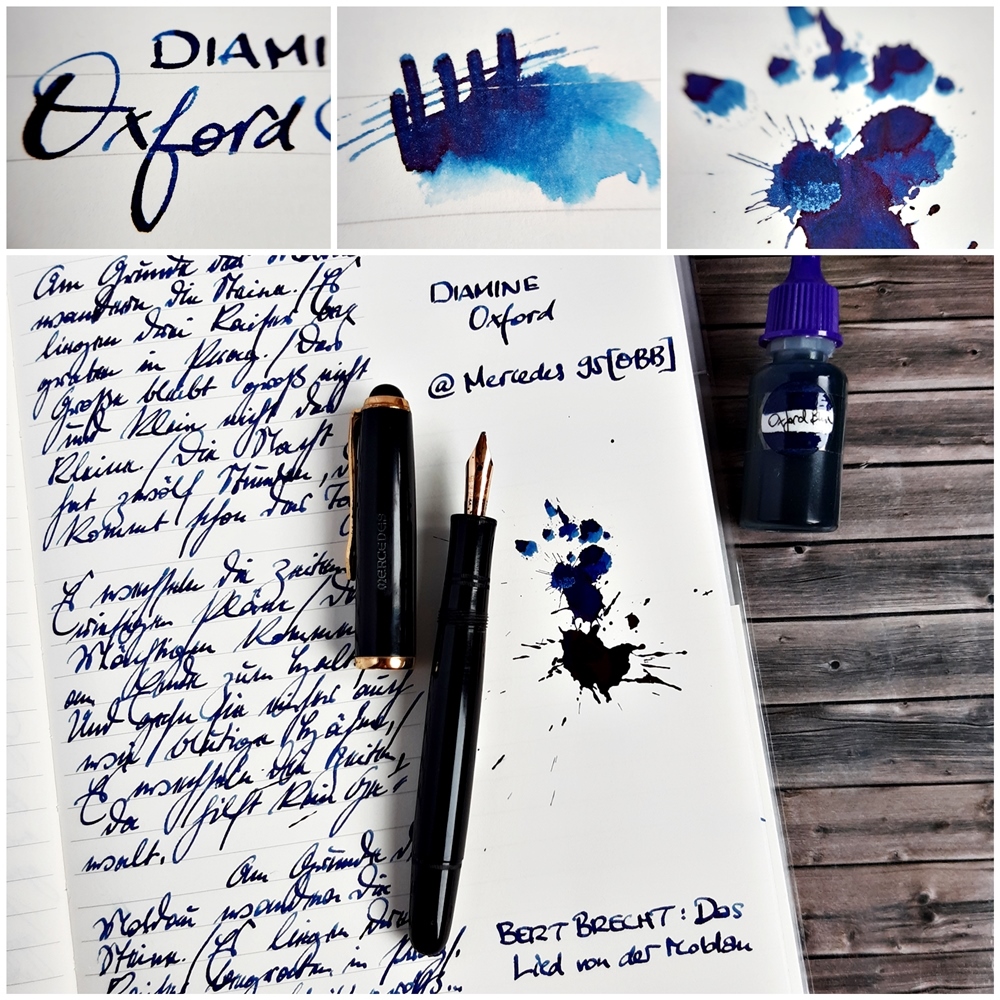 DIAMI
Oxford
Am Grunde der
wandern die Steine / Es
liegen drei Kaiser beg
graben in Prag. / Das
Große bleibt groß nicht
und klein nicht das
Kleine / Die Nacht
hat zwölf Stunden,
kommt schon der Ta
Es wechseln die Zeiten
riesigen Pläne / De
Mächtigen kommen
am Ende zum Halt
Und gehn sie einher auch
wie blutige Hähne /
Es wechseln die Zeiten,
da hilft kein Ge-
walt.
Am Grunde d
Moldau wandern die
Steine / Es liegen drei
Kaiser begraben in Prag
DIAMINE
Oxford
@ Mercedes 95 [OBB]
MERCEDES
Oxford Blu
BERT BRECHT: Das
Lied von der Moldau